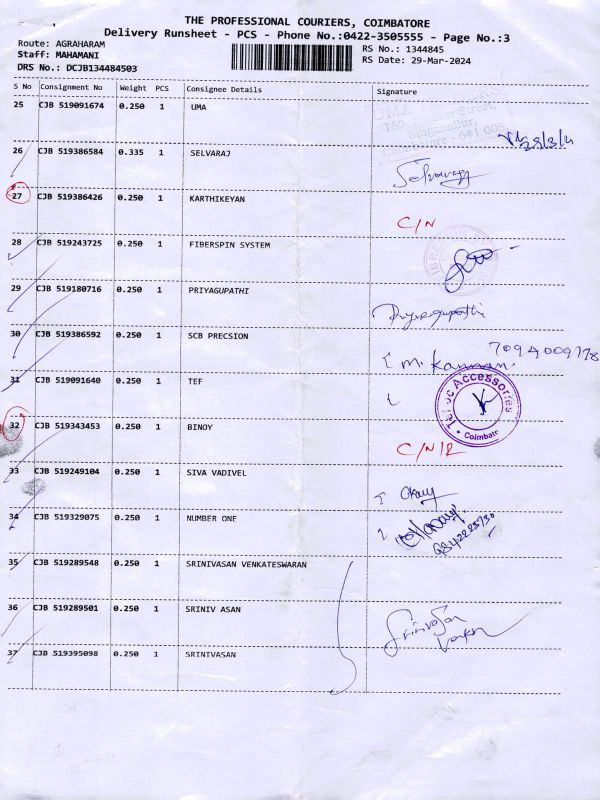 THE PROFESSIONAL COURIERS, COIMBATORE
Delivery Runsheet - PCS - Phone No.:0422-3505555 - Page No.:3
Route: AGRAHARAM RS No.: 1344845
Staff: MAHAMANI RS Date: 29-Mar-2024
DRS No.: DCJB134484503
S No Consignment No Weight PCS Consignee Details Signature
25 CJB 519091674 0.250 1 UMA
UMA
Street,
Singanallur,
Coimbatore - 641 005
26 CJB 519386584 0.335 1 SELVARAJ Selvaraj
27 CJB 519386426 0.250 1 KARTHIKEYAN C/N
28 CJB 519243725 0.250 1 FIBERSPIN SYSTEM
29 CJB 519180716 0.250 1 PRIYAGUPATHI Priyagupathi
30 CJB 519386592 0.250 1 SCB PRECSION M. Kannan.
31 CJB 519091640 0.250 1 TEF
Accessories
Coimbate
32 CJB 519343453 0.250 1 BINOY C/N/R
33 CJB 519249104 0.250 1 SIVA VADIVEL
34 CJB 519329075 0.250 1 NUMBER ONE
35 CJB 519289548 0.250 1 SRINIVASAN VENKATESWARAN
36 CJB 519289501 0.250 1 SRINIV ASAN Srinivasan
37 CJB 519395098 0.250 1 SRINIVASAN